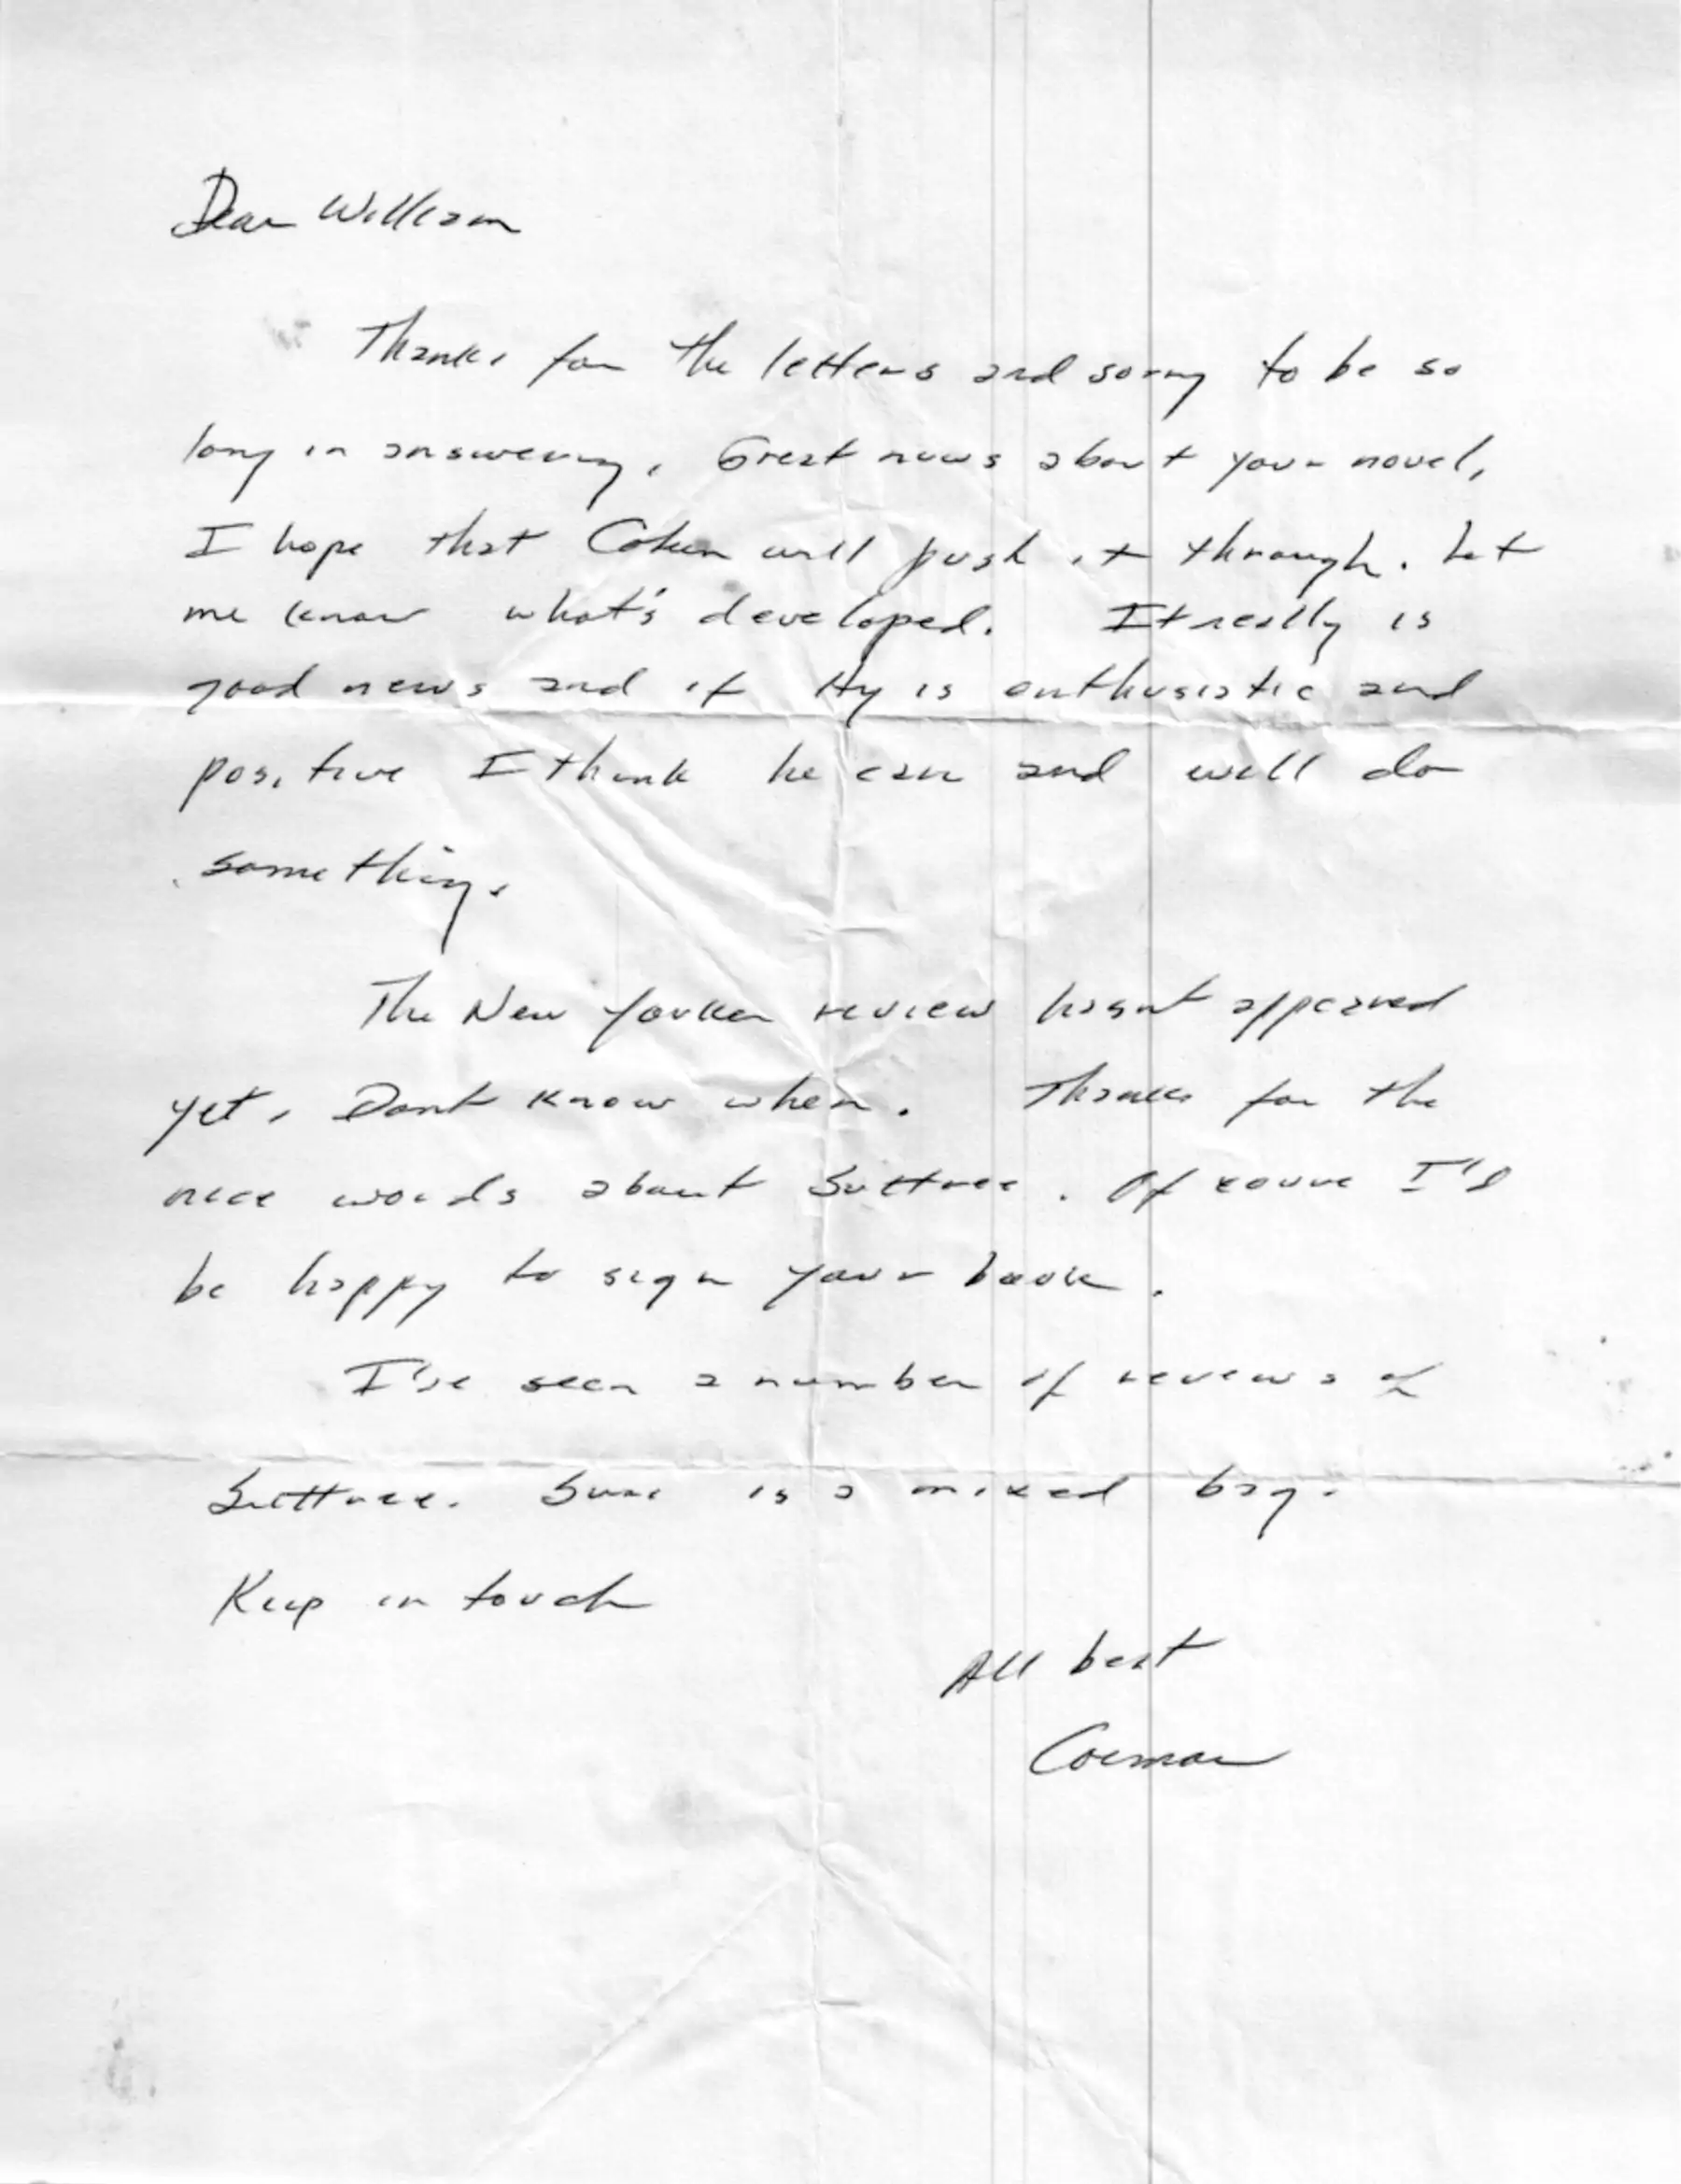 Dear William
Thanks for the letters and sorry to be so
long in answering. Great news about your novel.
I hope that Cohen will push it through. Let
me know what's developed. It really is
good news and if Hy is enthusiastic and
positive I think he can and will do
something.
The New Yorker review hasnt appeared
yet. Dont know when. Thanks for the
nice words about Suttree. Of course I'd
be happy to sign your book.
I've seen a number of reviews of
Suttree. Sure is a mixed bag.
Keep in touch
All best
Cormac